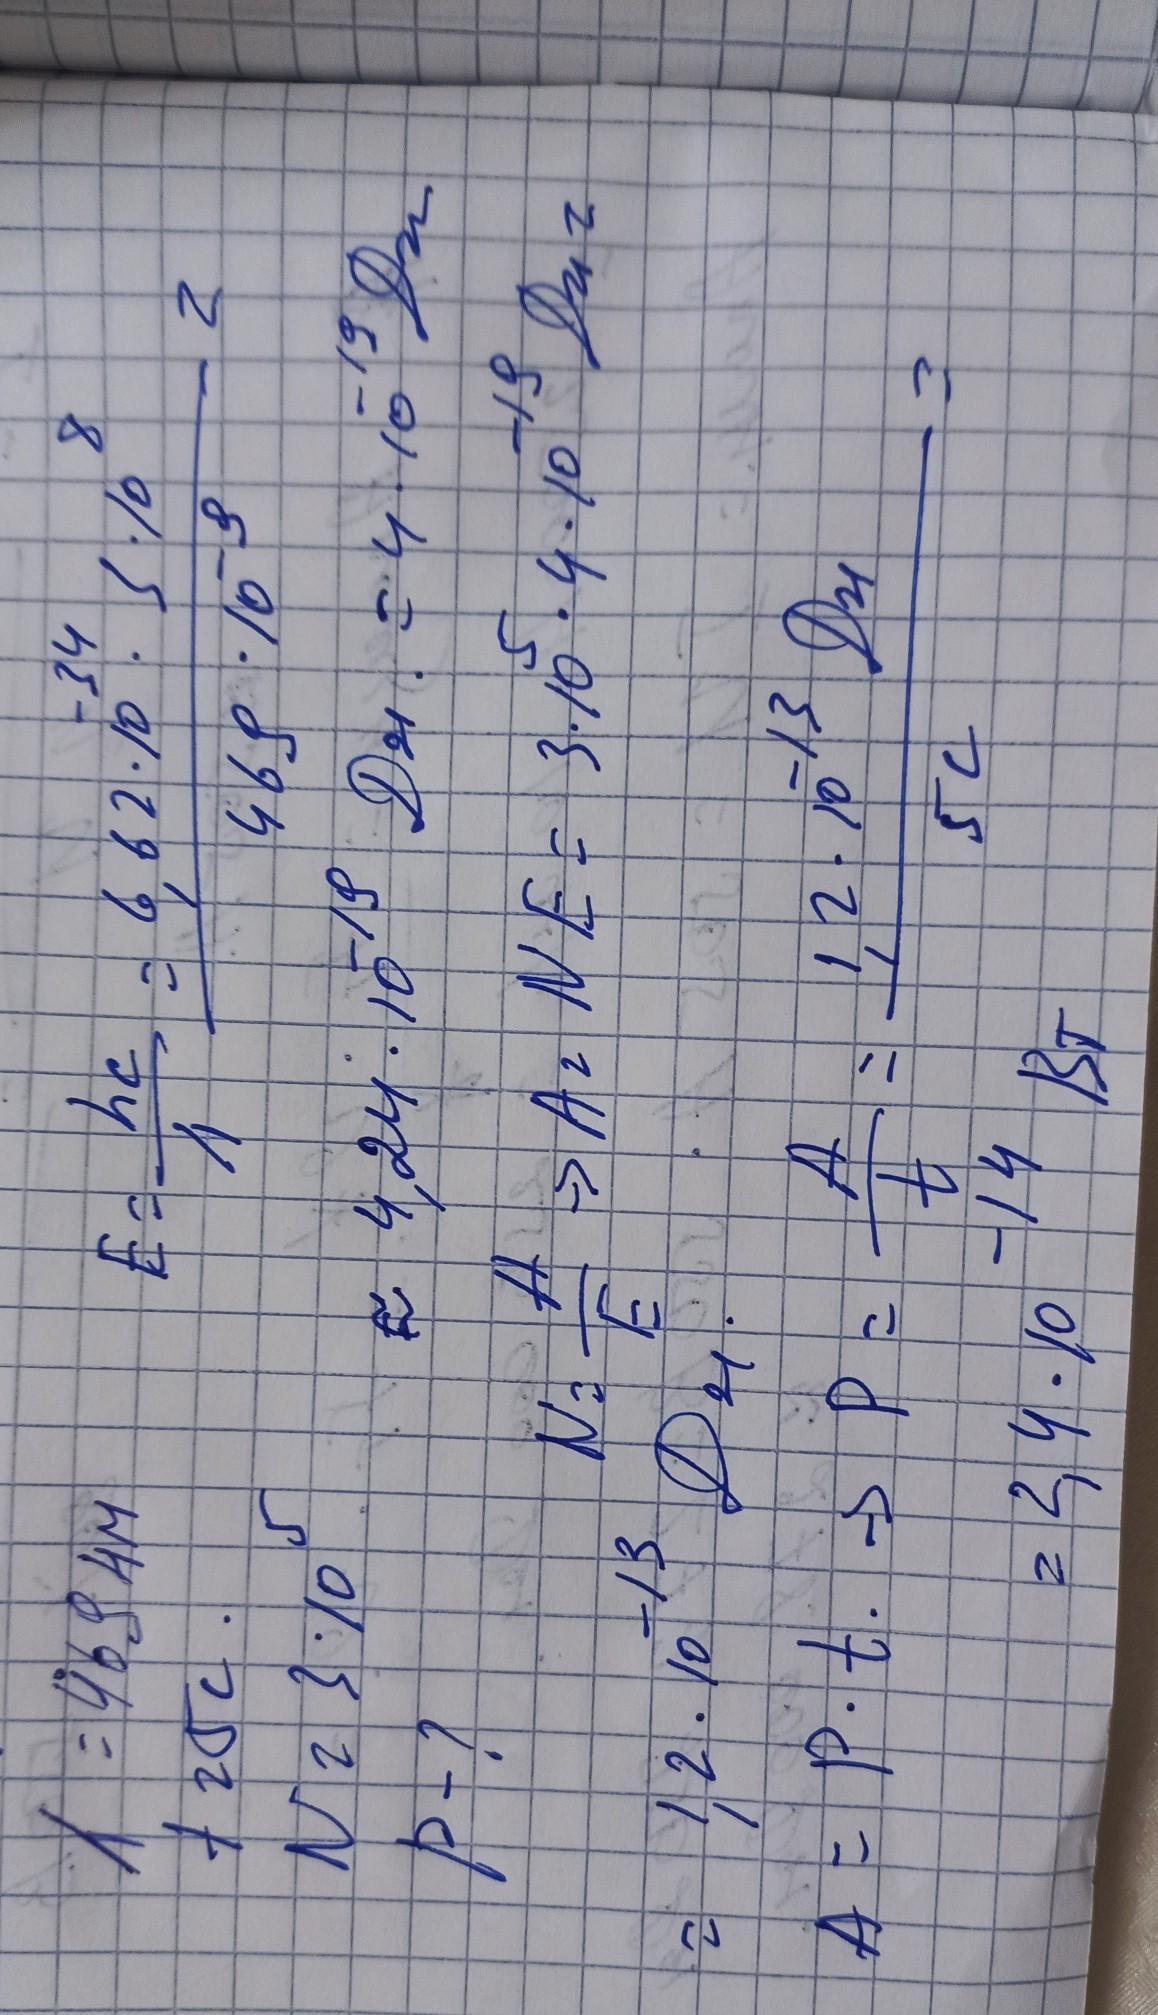 λ = 469 нм
t = 5c.
N = 3·10⁵
P - ?
E = hc/λ = 6,62·10⁻³⁴·3·10⁸ / 469·10⁻⁹ =
≈ 4,24·10⁻¹⁹ Дж. = 4·10⁻¹⁹ Дж
N = A/E → A = NE = 3·10⁵·4·10⁻¹⁹ Дж =
= 1,2·10⁻¹³ Дж.
A = P·t. → P = A/t = 1,2·10⁻¹³ Дж / 5c =
= 2,4·10⁻¹⁴ Вт